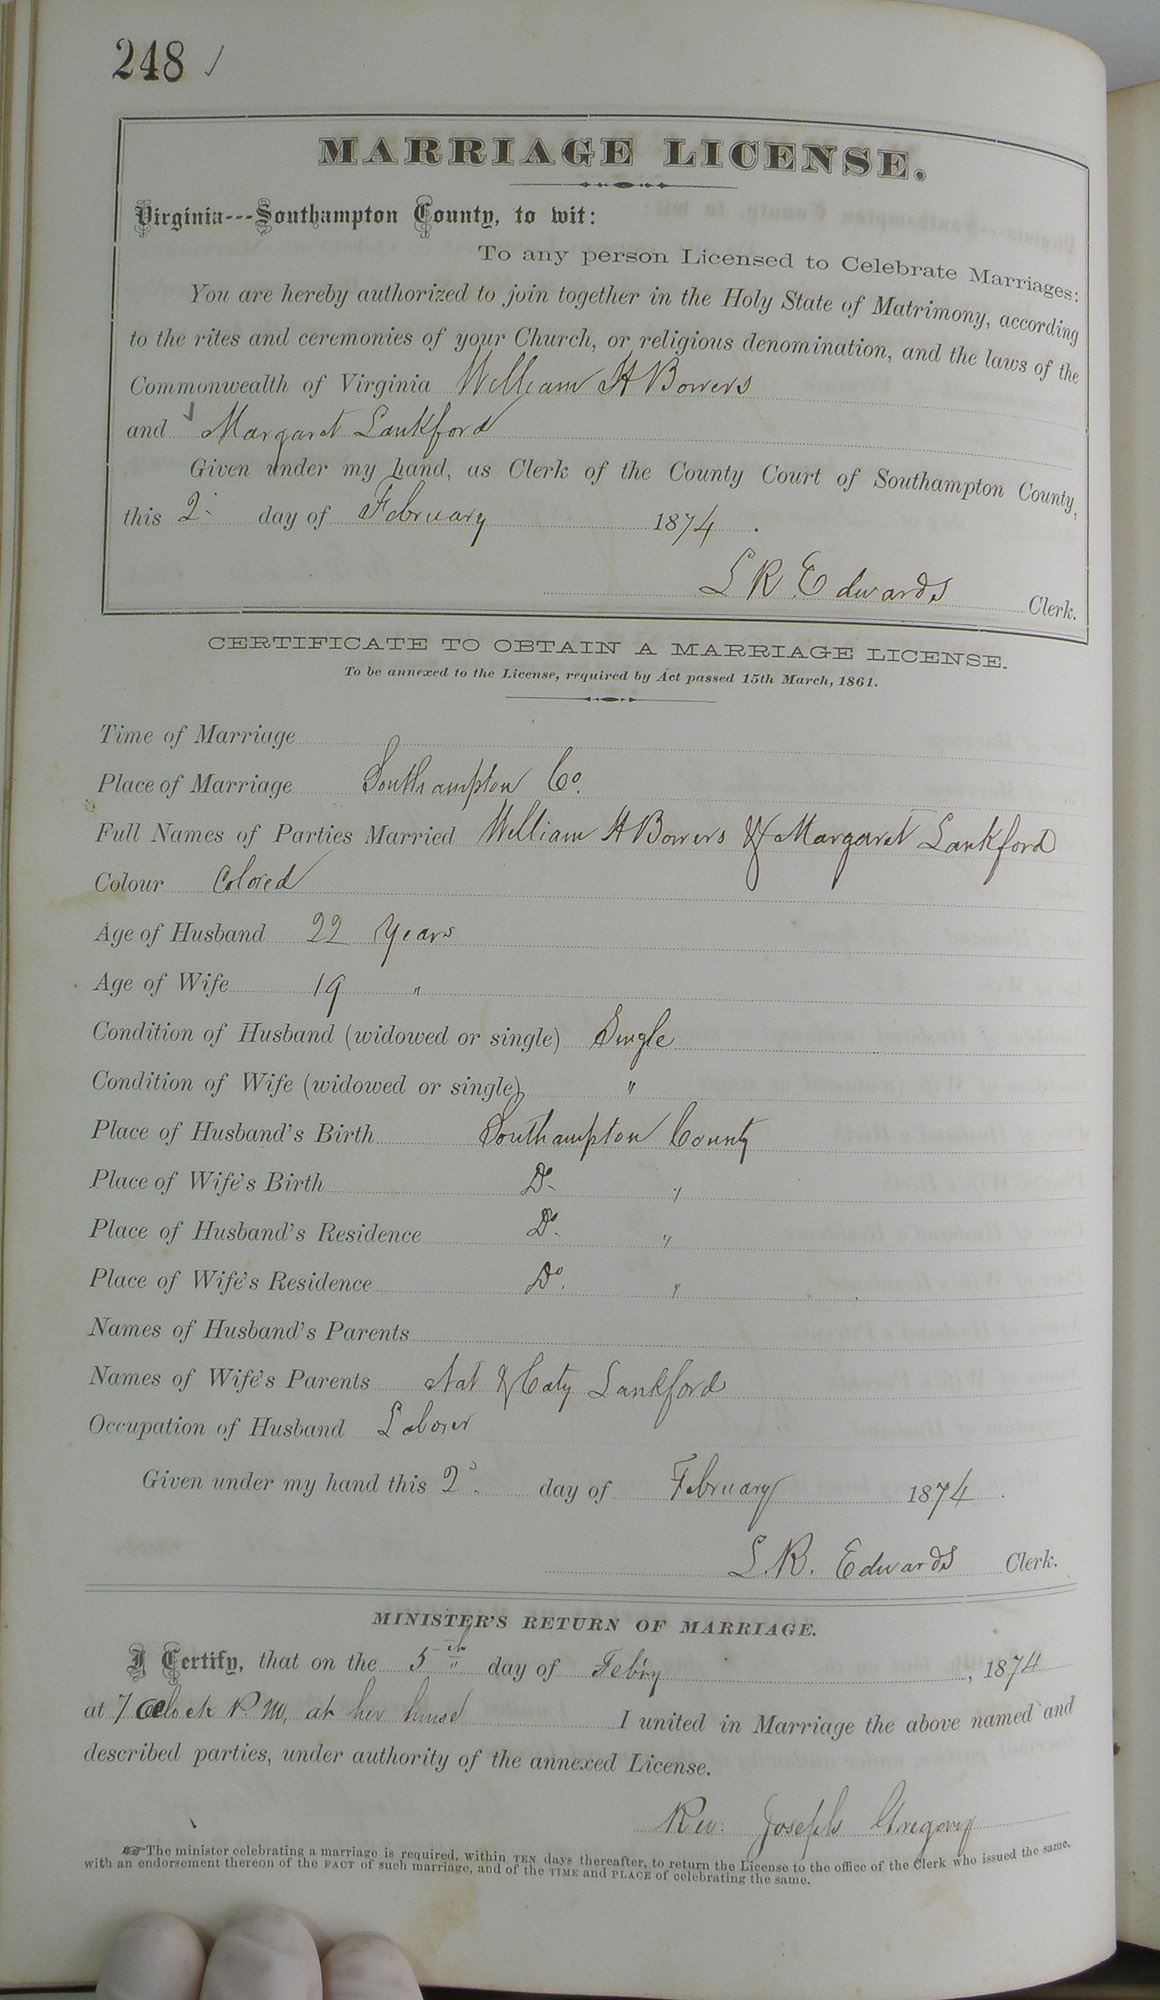 248 /
MARRIAGE LICENSE.
Virginia---Southampton County, to wit:
To any person Licensed to Celebrate Marriages:
You are hereby authorized to join together in the Holy State of Matrimony, according
to the rites and ceremonies of your Church, or religious denomination, and the laws of the
Commonwealth of Virginia William H Bowers
and Margaret Lankford
Given under my hand, as Clerk of the County Court of Southampton County,
this 2 day of February 1874.
L R Edwards Clerk.
CERTIFICATE TO OBTAIN A MARRIAGE LICENSE.
To be annexed to the License, required by Act passed 15th March, 1861.
Time of Marriage
Place of Marriage Southampton Co.
Full Names of Parties Married William H Bowers & Margaret Lankford
Colour Colored
Age of Husband 22 Years
Age of Wife 19 "
Condition of Husband (widowed or single) Single
Condition of Wife (widowed or single) "
Place of Husband's Birth Southampton County
Place of Wife's Birth Do. "
Place of Husband's Residence Do. "
Place of Wife's Residence Do. "
Names of Husband's Parents
Names of Wife's Parents Nat & Caty Lankford
Occupation of Husband Laborer
Given under my hand this 2 day of February 1874.
L.R. Edwards Clerk.
MINISTER'S RETURN OF MARRIAGE.
I Certify, that on the 5th day of Febry, 1874
at 7 oclock P.M. at her I united in Marriage the above named and
described parties, under authority of the annexed License.
Rev. Joseph Gregory
☞The minister celebrating a marriage is required, within TEN days thereafter, to return the License to the office of the Clerk who issued the same,
with an endorsement thereon of the FACT of such marriage, and of the TIME and PLACE of celebrating the same.